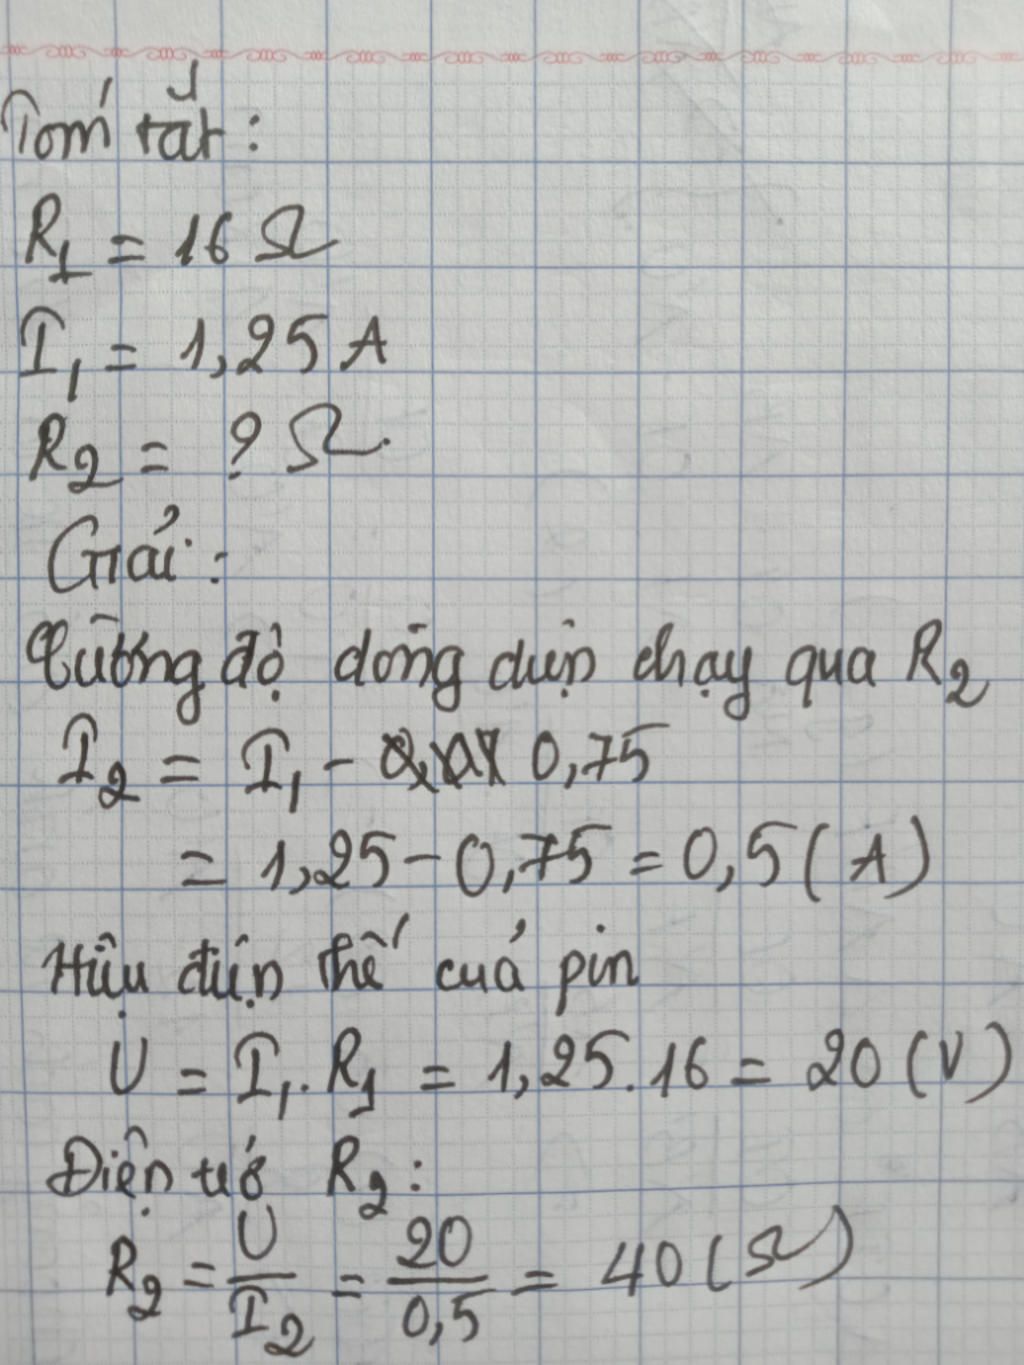 Tóm tắt:
R₁ = 16 Ω
I₁ = 1,25 A
R₂ = ? Ω.
Giải:
Cường độ dòng điện chạy qua R₂
I₂ = I₁ - 0,75
= 1,25 - 0,75 = 0,5 (A)
Hiệu điện thế của pin
U = I₁. R₁ = 1,25. 16 = 20 (V)
Điện trở R₂:
R₂ = U/I₂ = 20/0,5 = 40 (Ω)